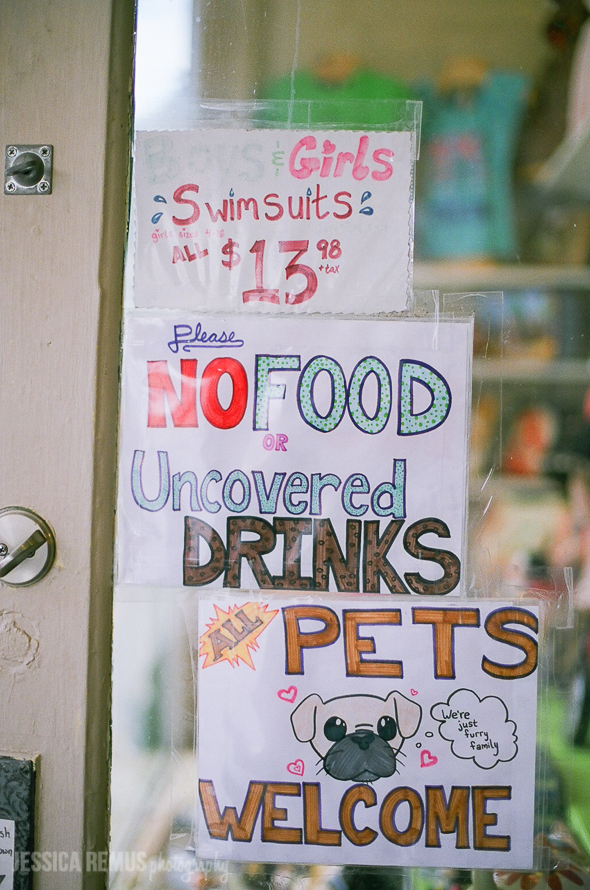 Boys & Girls
Swimsuits
ALL $13.98
+tax
Please
NO FOOD
OR
Uncovered
DRINKS
ALL PETS
We're
just
furry
family
WELCOME
JESSICA REMUS photography